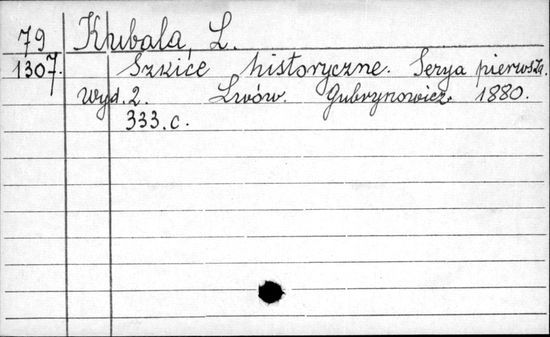 79 Kubala, L.
1307. Szkice historyczne. Serya pierwsza.
Wyd. 2. Lwów. Gubrynowicz. 1880.
333.c.